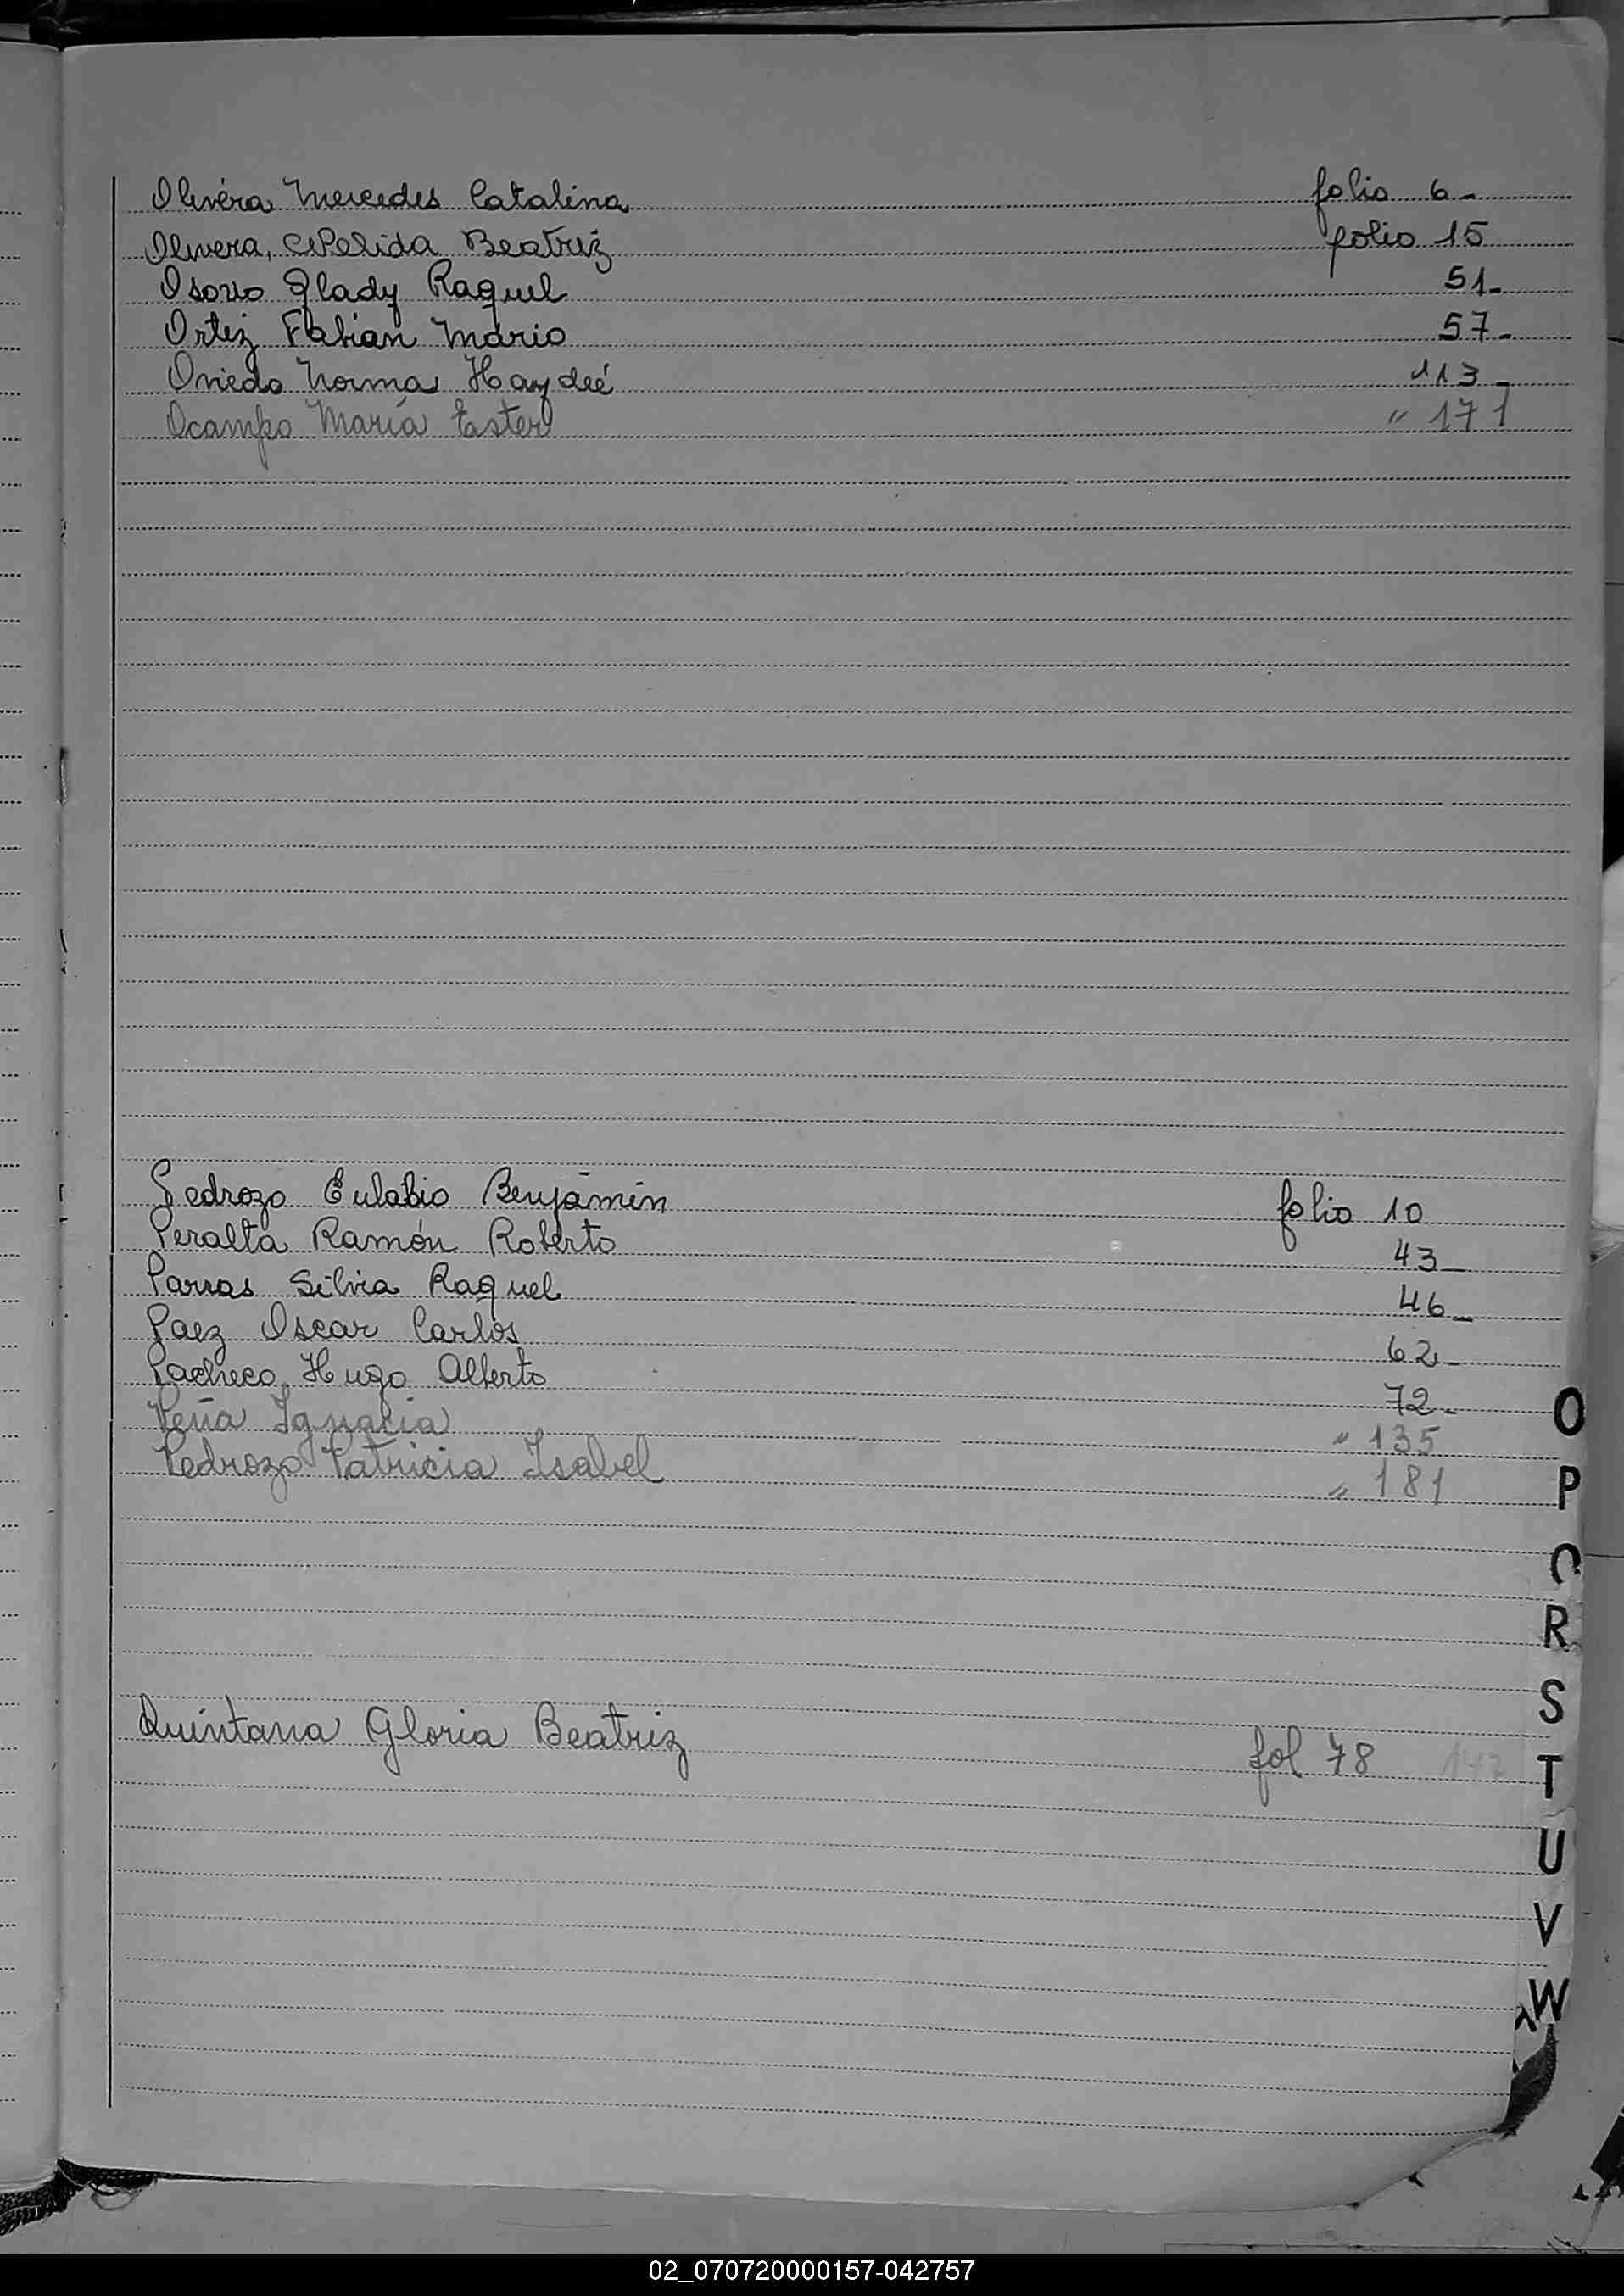 Olivera Mercedes Catalina folio 6-
Olivera, Nelida Beatriz folio 15
Osorio Glady Raquel 51-
Ortiz Fabian Mario 57-
Oviedo Norma Haydeé 113-
Ocampo María Ester " 171
Pedrozo Eulabio Benjamin folio 10
Peralta Ramón Roberto 43-
Parras Silvia Raquel 46-
Paez Oscar Carlos 62-
Pacheco Hugo Alberto 72-
Peña Ignacia " 135
Pedrozo Patricia Isabel " 181
Quintana Gloria Beatriz fol 78
O
P
Q
R
S
T
U
V
W
02_070720000157-042757